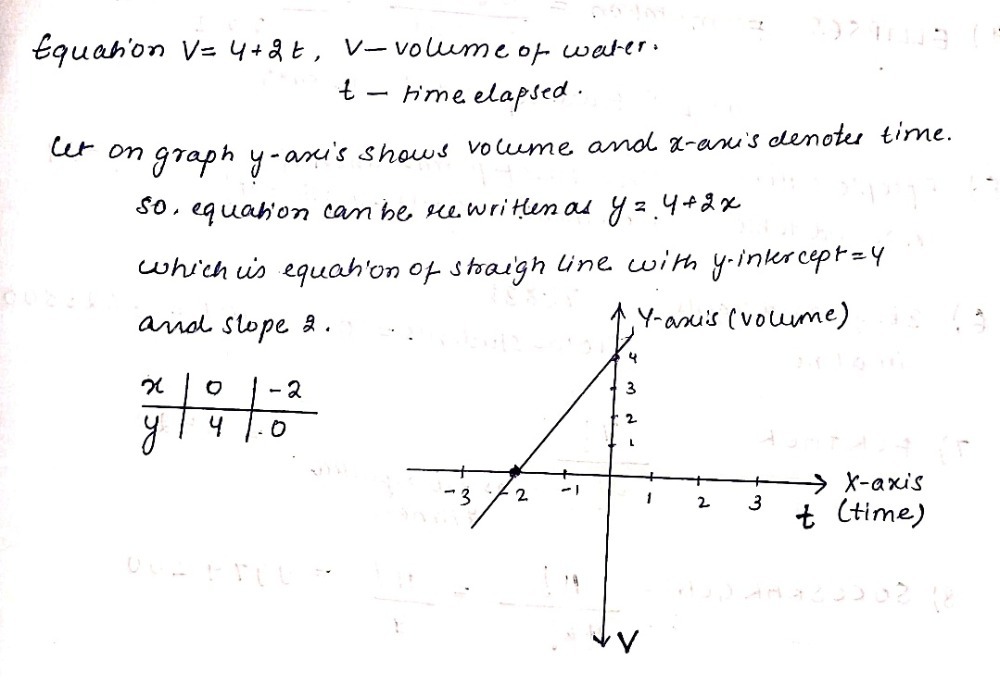 Equation V = 4+2t, V – volume of water.
t – time elapsed.
Let on graph y-axis shows volume and x-axis denotes time.
so, equation can be rewritten as y = 4+2x
which is equation of straigh line with y-intercept = 4
and slope 2.
Y-axis (volume)
x | 0 | -2
y | 4 | 0
4
3
2
1
-3 -2 -1 1 2 3
X-axis
t (time)
V